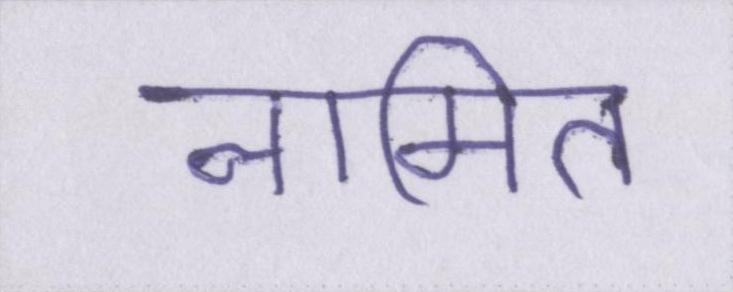 नामित